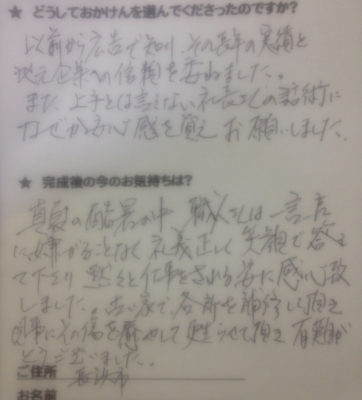 ★ どうしておかけんを選んでくださったのですか?
以前から広告で知り、その長年の実績と
地元企業への信頼を委ねました。
また、上手とは言えない社長さんの話術に
なぜか安心感を覚え お願いしました。
★ 完成後の今のお気持ちは?
真夏の酷暑の中 職人さんは一言言
に嫌がることなく礼義正しく笑顔で答え
て下さり 黙々と仕事をされる姿に感心致
しました。古い家で、各所を補修して頂き
事にその傷を 甦らせて頂き 有難
とうございました。
ご住所 長浜市
お名前